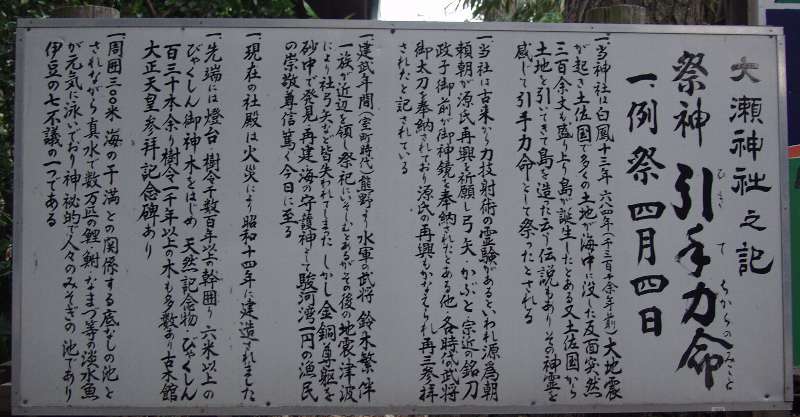 大瀬神社之記
祭神 引手力命
ひきてちからのみこと
一、例祭 四月四日
一、当神社は白鳳十三年 六八四年(千三百十余年前)大地震
が起き土佐国で多くの土地が海中に没した反面突然
三百余丈も盛り上り島が誕生したとある又土佐国から
土地を引いてきて島を造ったと云う伝説もあり その神霊を
感じて引手力命として祭ったとされる
一、当社は古来から力技射術の霊験があるといわれ源為朝
頼朝が源氏再興を祈願し弓矢・かぶと・宗近の銘刀
政子御前が御神鏡を奉納されたとある他・各時代の武将
御太刀を奉納されており源氏の再興もかなえられ再三参拝
されたと記されている
一、建武年間(室町時代)熊野より水軍の武将 鈴木繁伴
一族が近辺を領し祭祀にいそしむとあるがその後の地震津波
により社弓矢など皆失われてしまった しかし金銅尊躯を
砂中で発見 再建 海の守護神として駿河湾一円の漁民
の崇敬尊信篤く今日に至る
一、現在の社殿は火災により昭和十四年に建造されました
一、先端には燈台 樹令千数百年以上の幹囲り 六米以上の
びゃくしん御神木をはじめ 天然記念物 びゃくしん
百三十本余り樹令一千年以上の木も多数あり古木館
大正天皇参拝記念碑あり
一、周囲三〇〇米 海の干満との関係する底なしの池と
されながら真水で数万匹の鯉 鮒 なまづ等の淡水魚
が元気に泳いでおり神秘的で人々のみそぎの池であり
伊豆の七不議の一つである